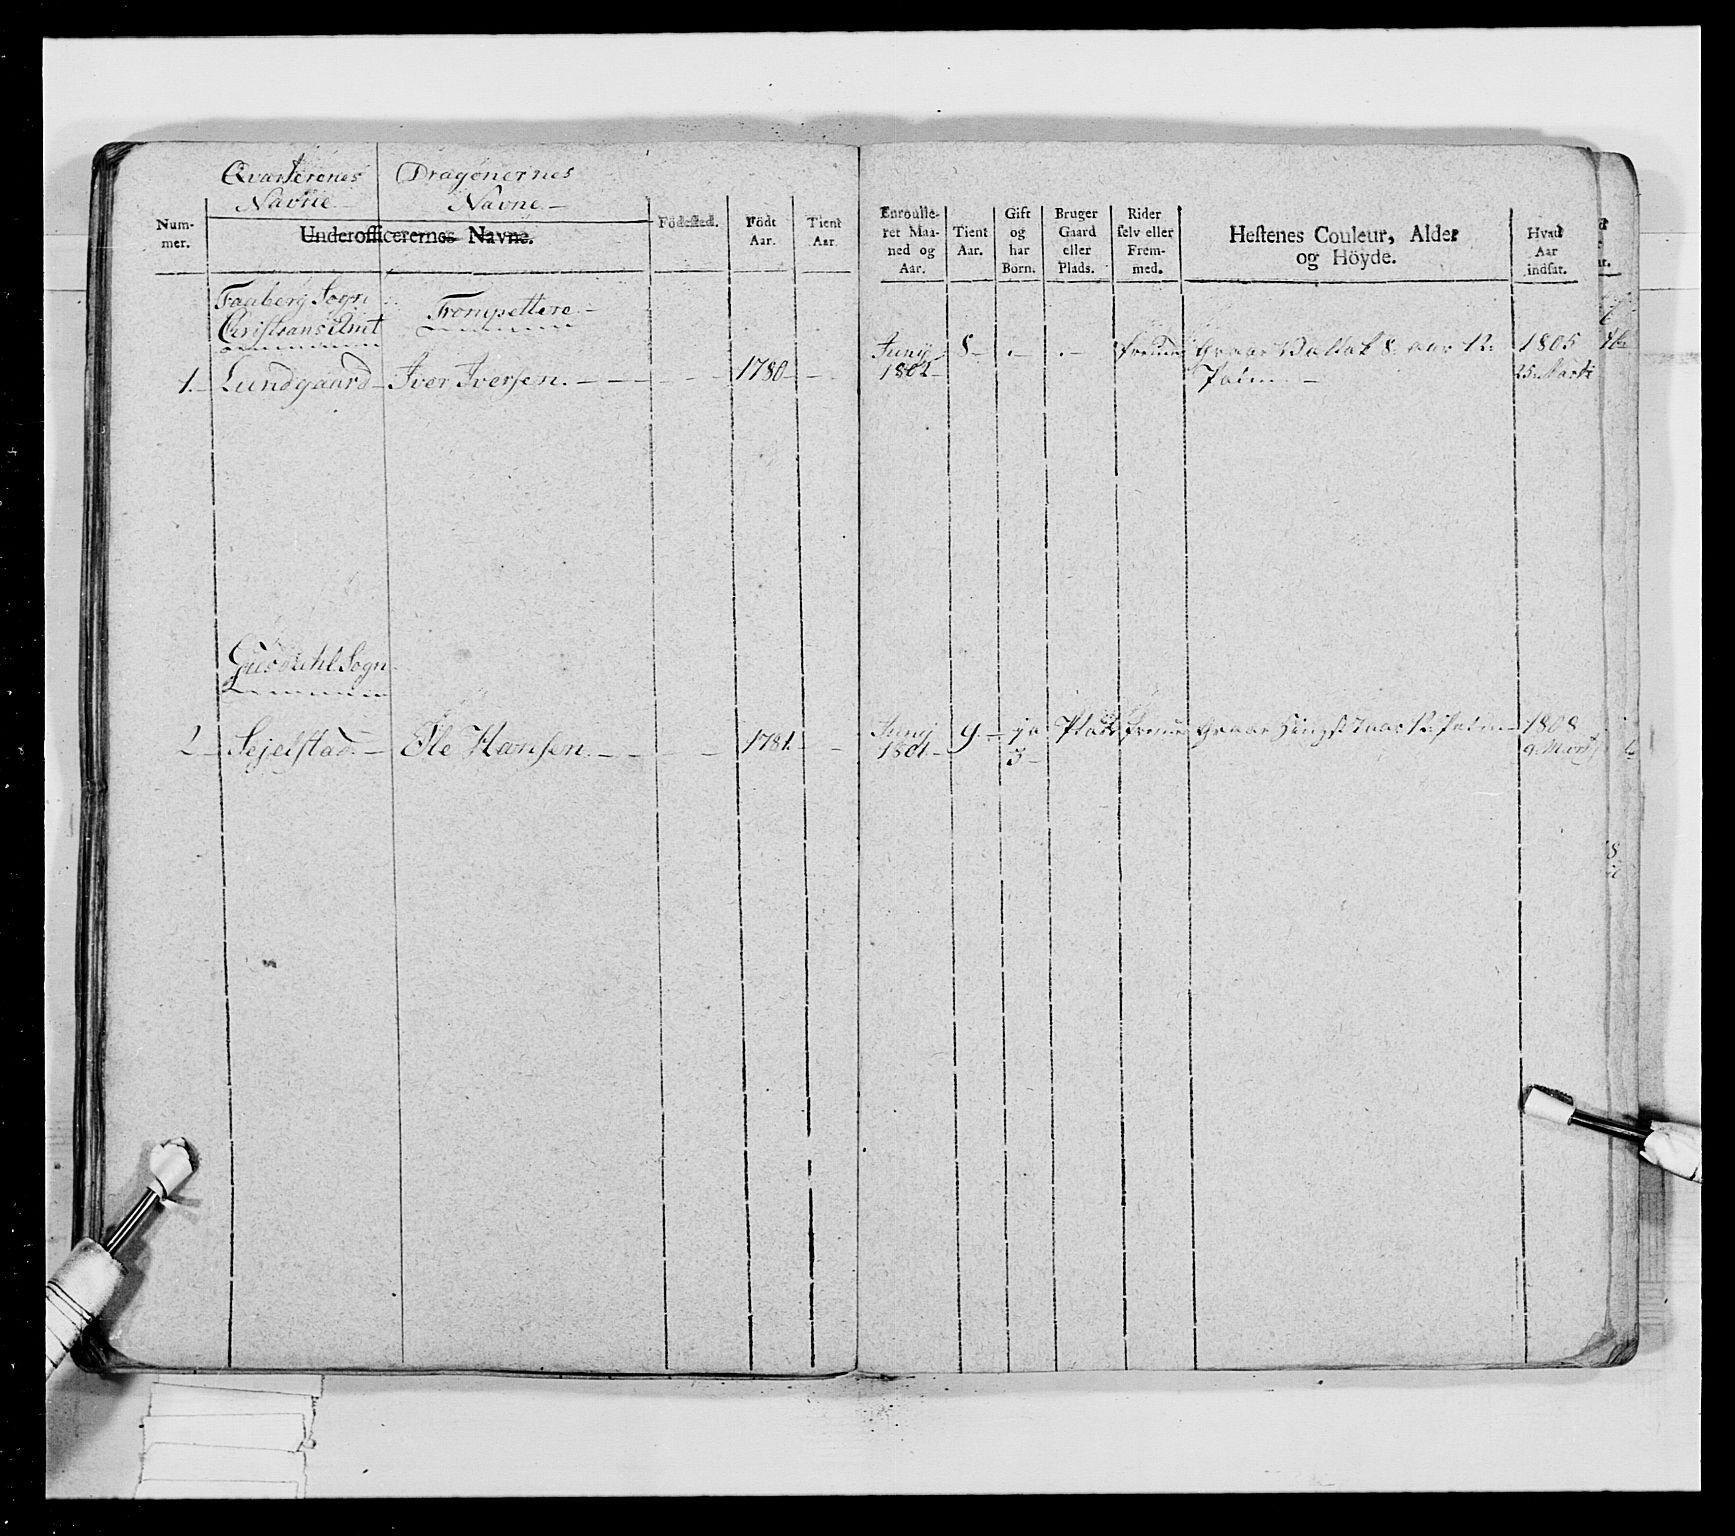 Qvarterenes Navne
Dragonernes Navne
Nummer.
Underofficerernes Navne.
Födested.
Födt Aar.
Tient Aar.
Enroulleret Maaned og Aar.
Tient Aar.
Gift og har Börn.
Bruger Gaard eller Plads.
Rider selv eller Fremmed.
Hestenes Couleur, Alder og Höyde.
Hvad Aar indsat.
Faaberg Sogn
Christians Amt
Trompettere
1. Lundgaard Iver Iversen. 1780 Junij 1802 8 Graae Vallak 8 aar 12 1805
25 Marti
Gusdahl Sogn
2 Sejelstad Ole Hansen. 1781. Junij 1801 9 ja 3 Plads Graae Hingst 7 aar 12 1808
9 Martj